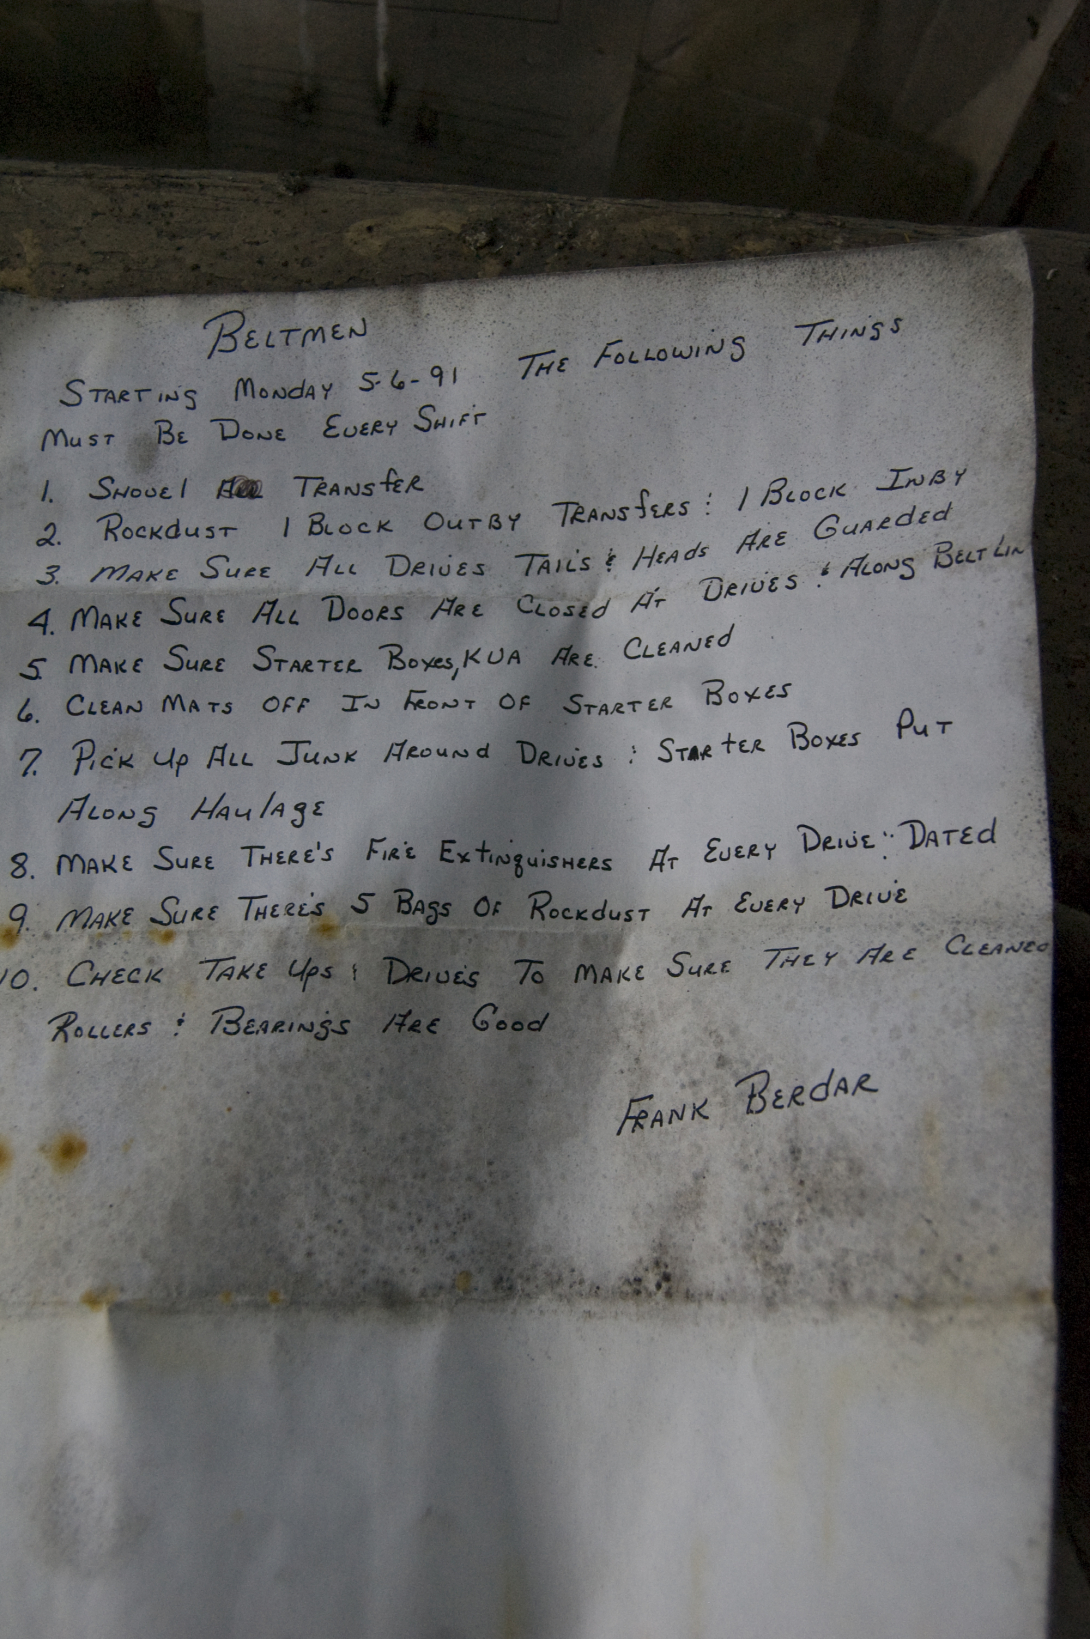 BELTMEN
STARTING MONDAY 5-6-91 THE FOLLOWING THINGS
MUST BE DONE EVERY SHIFT
1. SHOVEL ALL TRANSFER
2. ROCKDUST 1 BLOCK OUTBY TRANSFERS & 1 BLOCK INBY
3. MAKE SURE ALL DRIVES TAILS & HEADS ARE GUARDED
4. MAKE SURE ALL DOORS ARE CLOSED AT DRIVES & ALONG BELT LIN
5 MAKE SURE STARTER BOXES, KVA ARE CLEANED
6. CLEAN MATS OFF IN FRONT OF STARTER BOXES
7. PICK UP ALL JUNK AROUND DRIVES & STARTER BOXES PUT
ALONG HAULAGE
8. MAKE SURE THERE'S FIRE EXTINGUISHERS AT EVERY DRIVE & DATED
9. MAKE SURE THERE'S 5 BAGS OF ROCKDUST AT EVERY DRIVE
10. CHECK TAKE UPS & DRIVES TO MAKE SURE THEY ARE CLEANED
ROLLERS & BEARINGS ARE GOOD
FRANK BERDAR